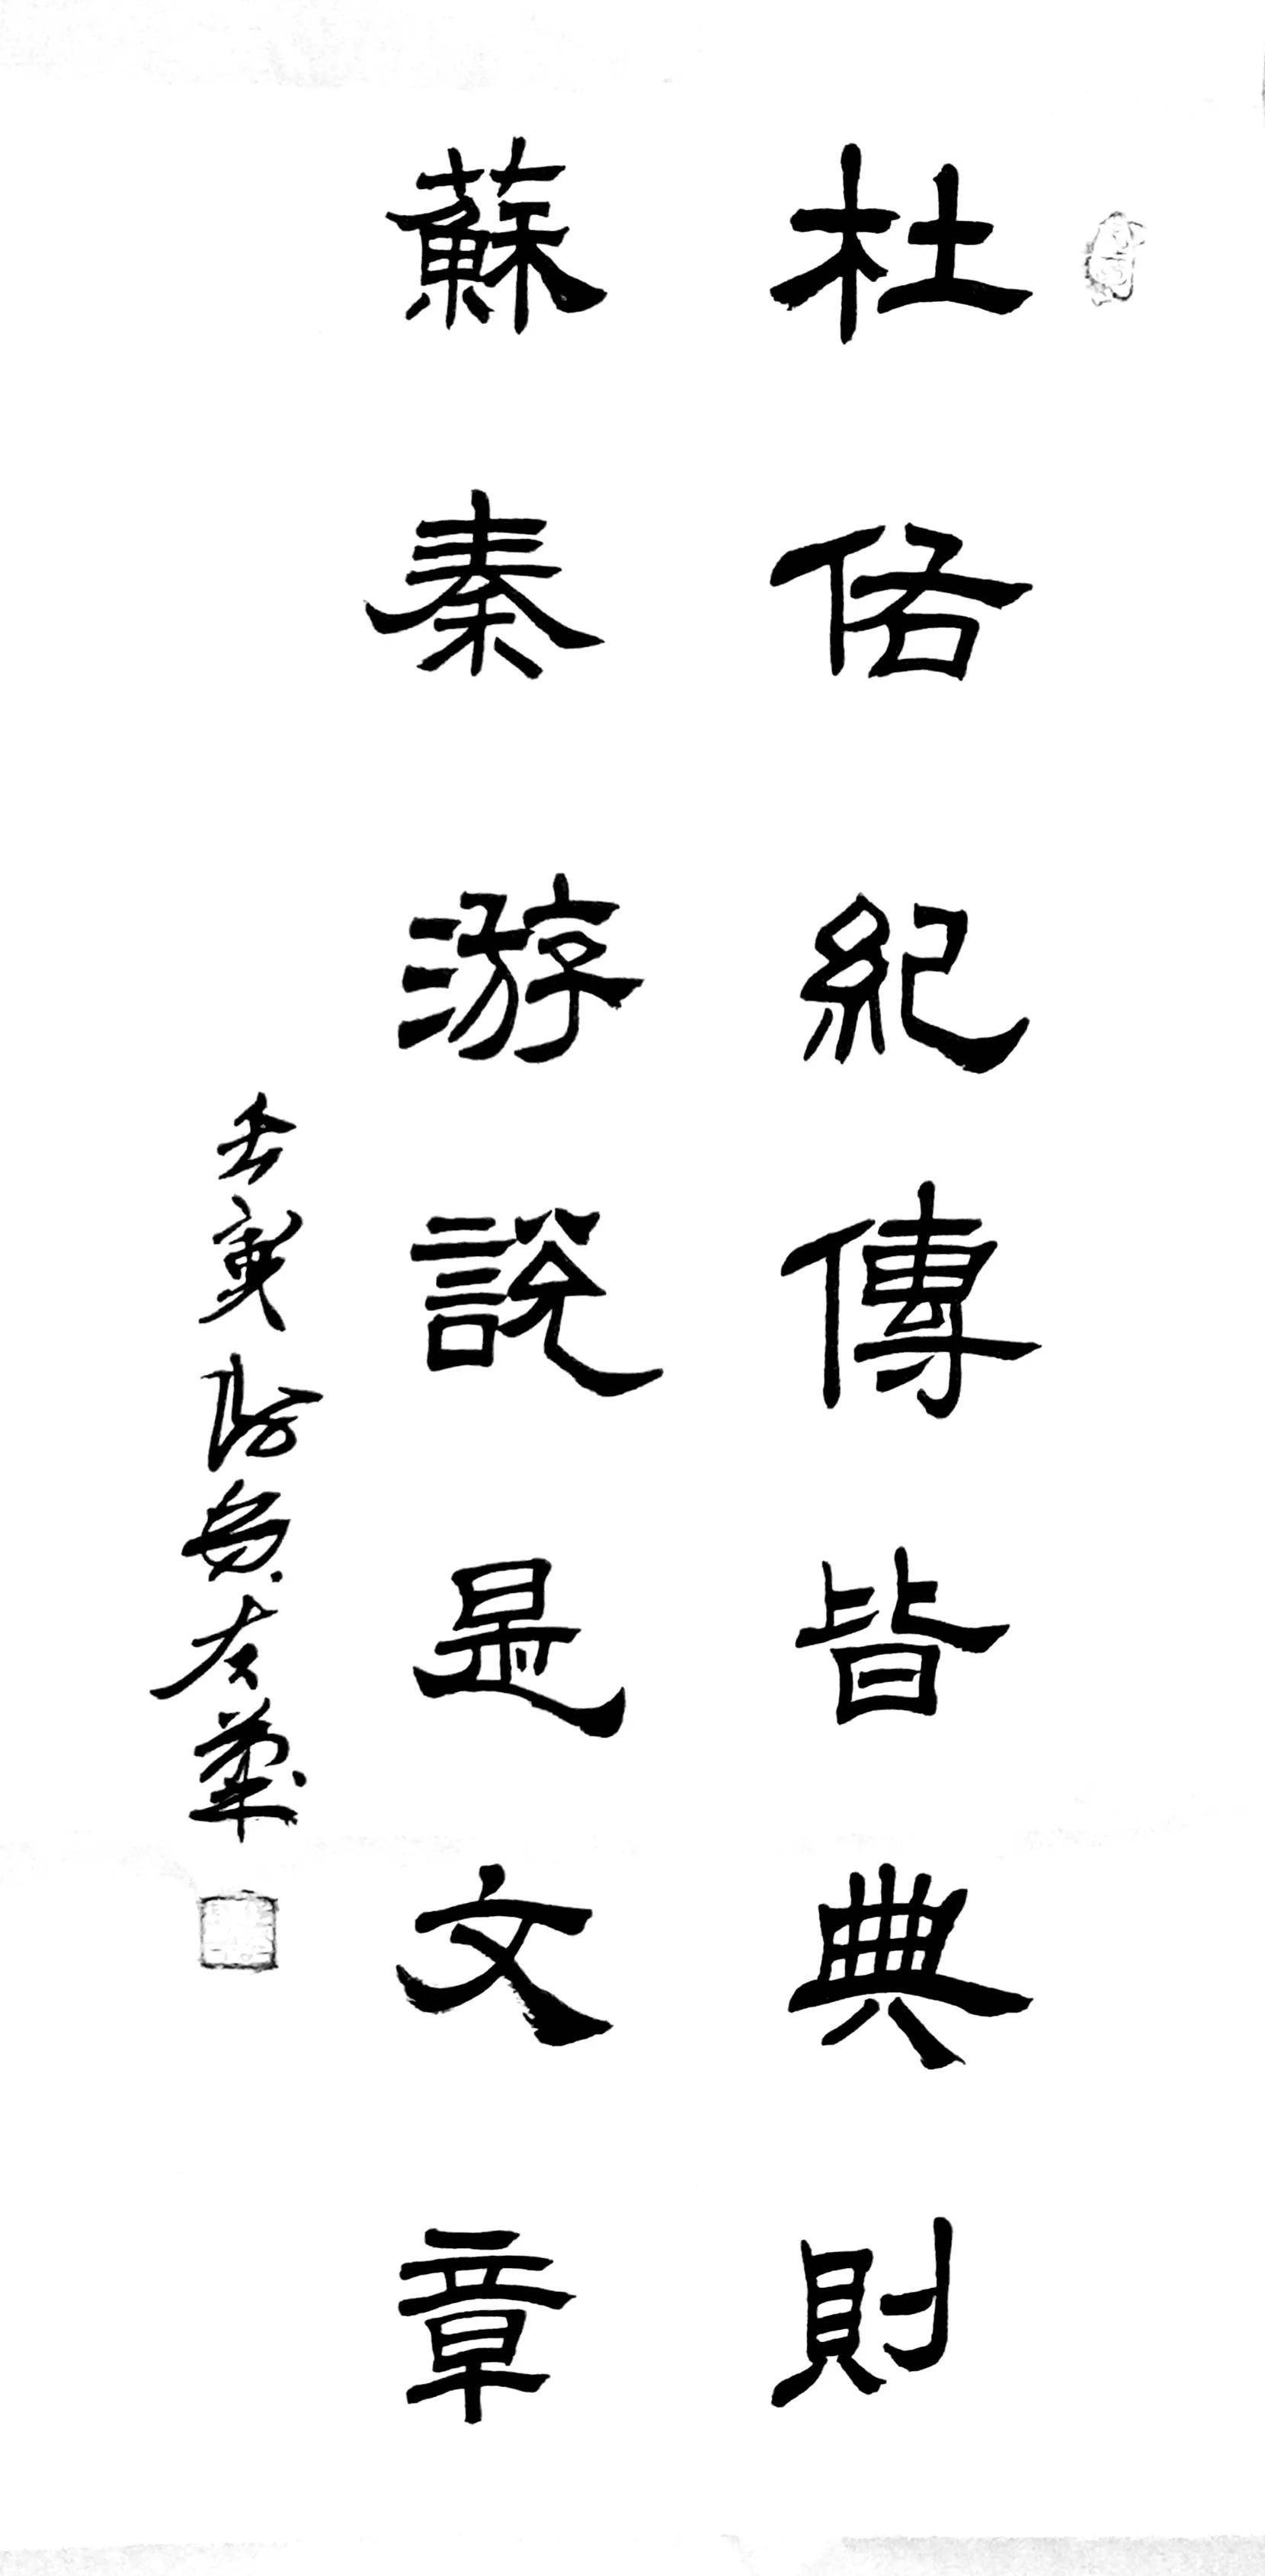 杜佑紀傳皆典則
蘇秦游說是文章
壬寅